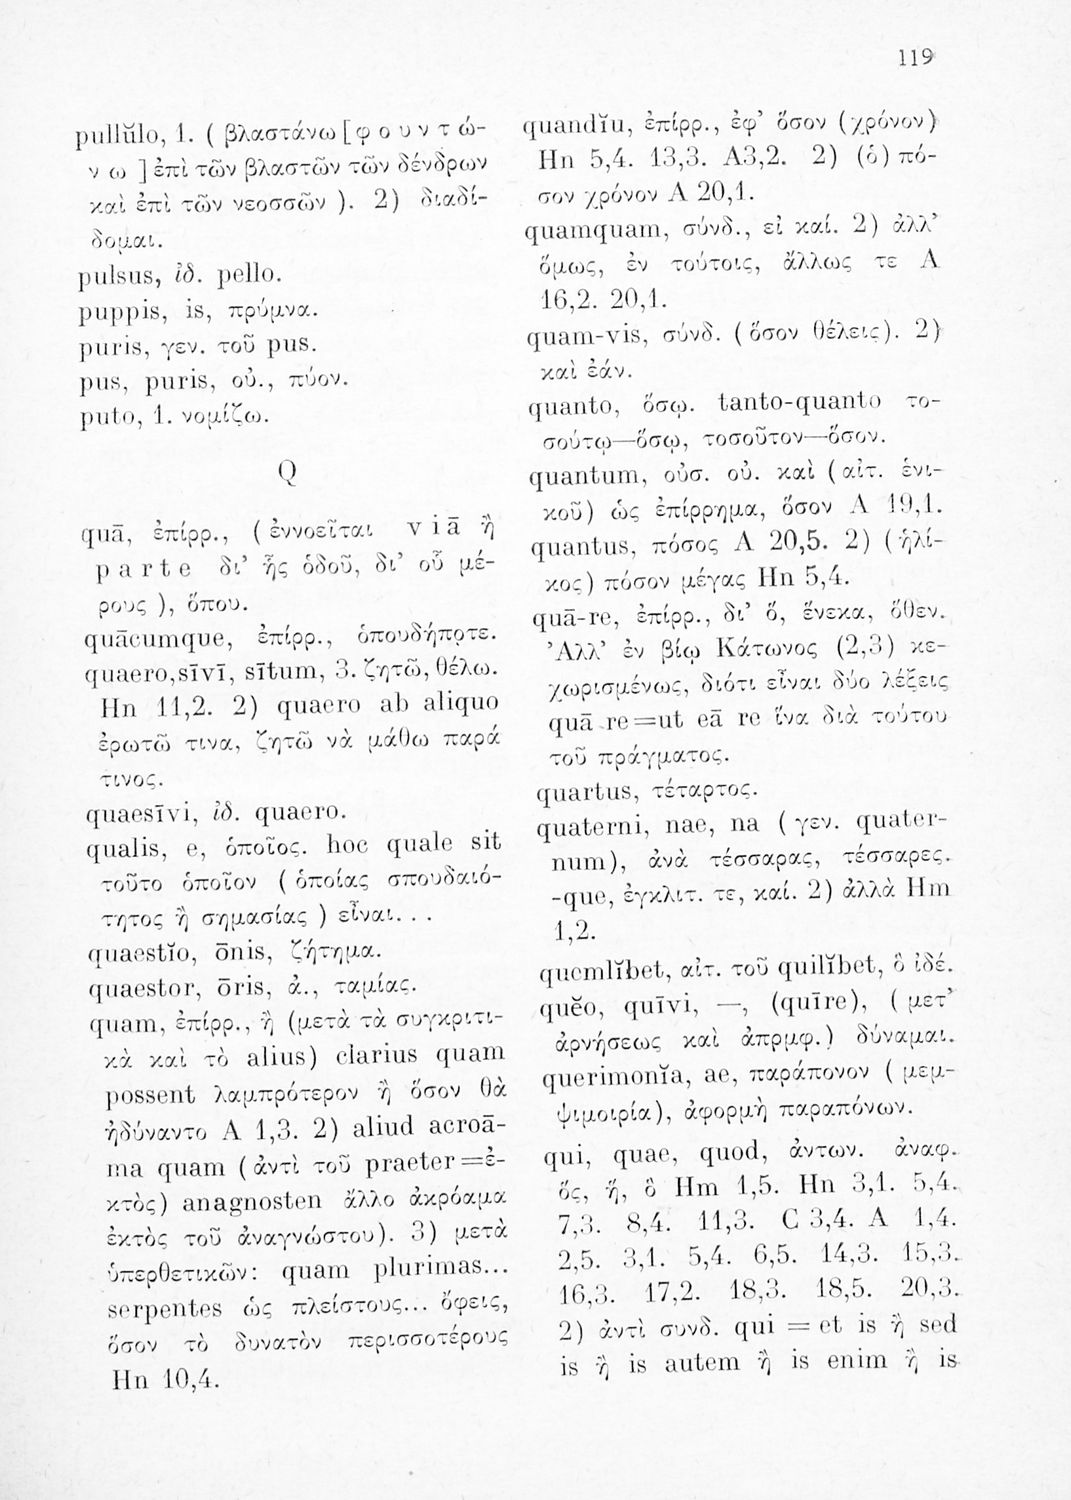 119
pullŭlo, 1. ( βλαστάνω [ φ ο υ ν τ ώ-
ν ω ] ἐπὶ τῶν βλαστῶν τῶν δένδρων
καὶ ἐπὶ τῶν νεοσσῶν ). 2) διαδί-
δομαι.
pulsus, ἰδ. pello.
puppis, is, πρύμνα.
puris, γεν. τοῦ pus.
pus, puris, οὐ., πύον.
puto, 1. νομίζω.
Q
quā, ἐπίρρ., ( ἐννοεῖται v i ā ἢ
p a r t e δι’ ἧς ὁδοῦ, δι’ οὗ μέ-
ρους ), ὅπου.
quācumque, ἐπίρρ., ὁπουδήποτε.
quaero,sīvī, sītum, 3. ζητῶ, θέλω.
Hn 11,2. 2) quaero ab aliquo
ἐρωτῶ τινα, ζητῶ νὰ μάθω παρά
τινος.
quaesīvi, ἰδ. quaero.
qualis, e, ὁποῖος. hoc quale sit
τοῦτο ὁποῖον ( ὁποίας σπουδαιό-
τητος ἢ σημασίας ) εἶναι. . .
quaestĭo, ōnis, ζήτημα.
quaestor, ōris, ἀ., ταμίας.
quam, ἐπίρρ., ἢ (μετὰ τὰ συγκριτι-
κὰ καὶ τὸ alius) clarius quam
possent λαμπρότερον ἢ ὅσον θὰ
ἠδύναντο A 1,3. 2) aliud acroā-
ma quam ( ἀντὶ τοῦ praeter=ἐ-
κτὸς) anagnosten ἄλλο ἀκρόαμα
ἐκτὸς τοῦ ἀναγνώστου). 3) μετὰ
ὑπερθετικῶν: quam plurimas...
serpentes ὡς πλείστους... ὄφεις,
ὅσον τὸ δυνατὸν περισσοτέρους
Hn 10,4.
quandĭu, ἐπίρρ., ἐφ’ ὅσον (χρόνον)
Hn 5,4. 13,3. A3,2. 2) (ὁ) πό-
σον χρόνον A 20,1.
quamquam, σύνδ., εἰ καί. 2) ἀλλ’
ὅμως, ἐν τούτοις, ἄλλως τε A
16,2. 20,1.
quam-vis, σύνδ. ( ὅσον θέλεις). 2)
καὶ ἐάν.
quanto, ὅσῳ. tanto-quanto το-
σούτῳ—ὅσῳ, τοσοῦτον—ὅσον.
quantum, οὐσ. οὐ. καὶ ( αἰτ. ἑνι-
κοῦ) ὡς ἐπίρρημα, ὅσον A 19,1.
quantus, πόσος A 20,5. 2) ( ἡλί-
κος) πόσον μέγας Hn 5,4.
quā-re, ἐπίρρ., δι’ ὅ, ἕνεκα, ὅθεν.
’Αλλ’ ἐν βίῳ Κάτωνος (2,3) κε-
χωρισμένως, διότι εἶναι δύο λέξεις
quā re=ut eā re ἵνα διὰ τούτου
τοῦ πράγματος.
quartus, τέταρτος.
quaterni, nae, na ( γεν. quater-
num), ἀνὰ τέσσαρας, τέσσαρες.
-que, ἐγκλιτ. τε, καί. 2) ἀλλὰ Hm
1,2.
quemlĭbet, αἰτ. τοῦ quilĭbet, ὃ ἰδέ.
quĕo, quīvi, —, (quīre), ( μετ’
ἀρνήσεως καὶ ἀπρμφ.) δύναμαι.
querimonĭa, ae, παράπονον ( μεμ-
ψιμοιρία), ἀφορμὴ παραπόνων.
qui, quae, quod, ἀντων. ἀναφ.
ὅς, ἥ, ὃ Hm 1,5. Hn 3,1. 5,4.
7,3. 8,4. 11,3. C 3,4. A 1,4.
2,5. 3,1. 5,4. 6,5. 14,3. 15,3.
16,3. 17,2. 18,3. 18,5. 20,3.
2) ἀντὶ συνδ. qui = et is ἢ sed
is ἢ is autem ἢ is enim ἢ is